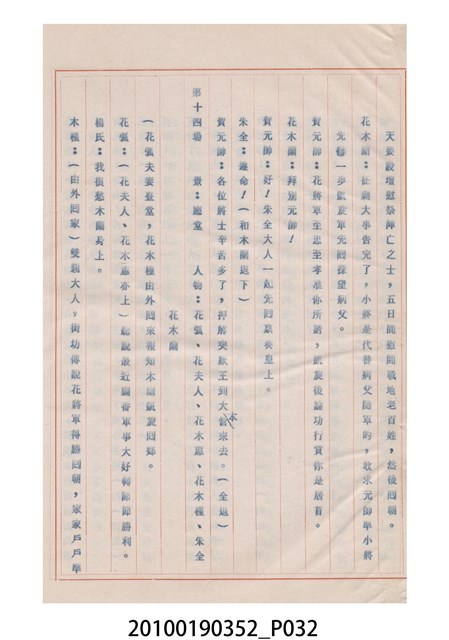 天要設壇慰祭陣亡之士，五日開慰問戰地老百姓，然後回朝。
花木蘭：征剿大事告完了，小將是代替病父隨軍的，敢求元帥準小將
先行一步凱旋軍先回探望病父。
賀元帥：花將軍至忠至孝准你所請，凱旋後論功行賞你是居首。
花木蘭：拜別元帥！
賀元帥：好！朱全大人一起先回稟奏皇上。
朱全：遵命！（和木蘭退下）
賀元帥：各位將士辛苦多了，押解突厥王到大本營來去。（全退）
第十四場　景：廳堂　人物：花弧、花夫人、花木惠、花木棣、朱全
花木蘭
（花弧夫妻登堂，花木棣由外回來報知木蘭凱旋回歸。
花弧：（花夫人、花木惠亦上）總說最近圖番軍事大好轉節節勝利。
楊氏：我很愁木蘭身上。
木棣：（由外回家）雙親大人，街坊傳說花將軍得勝回朝，家家戶戶準
20100190352_P032